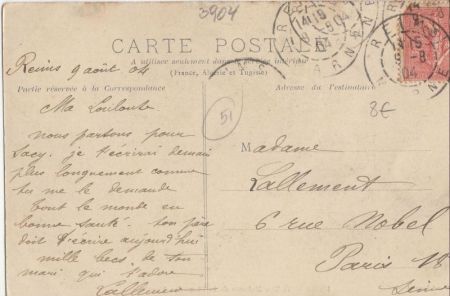 3904
CARTE POSTALE
A utiliser seulement dans le service intérieur
(France, Algérie et Tunisie)
Reims 9 août 04
Partie réservée à la Correspondance
Adresse du Destinataire
51
8€
Ma Louloute
nous partons pour
Sacy. je t'écrirai demain
plus longuement comme
tu me le demande
tout le monde en
bonne santé. ton père
doit t'écrire aujourd'hui
mille becs de ton
mari qui t'adore
Lallement
Madame
Lallement
6 rue Nobel
Paris 18
Seine